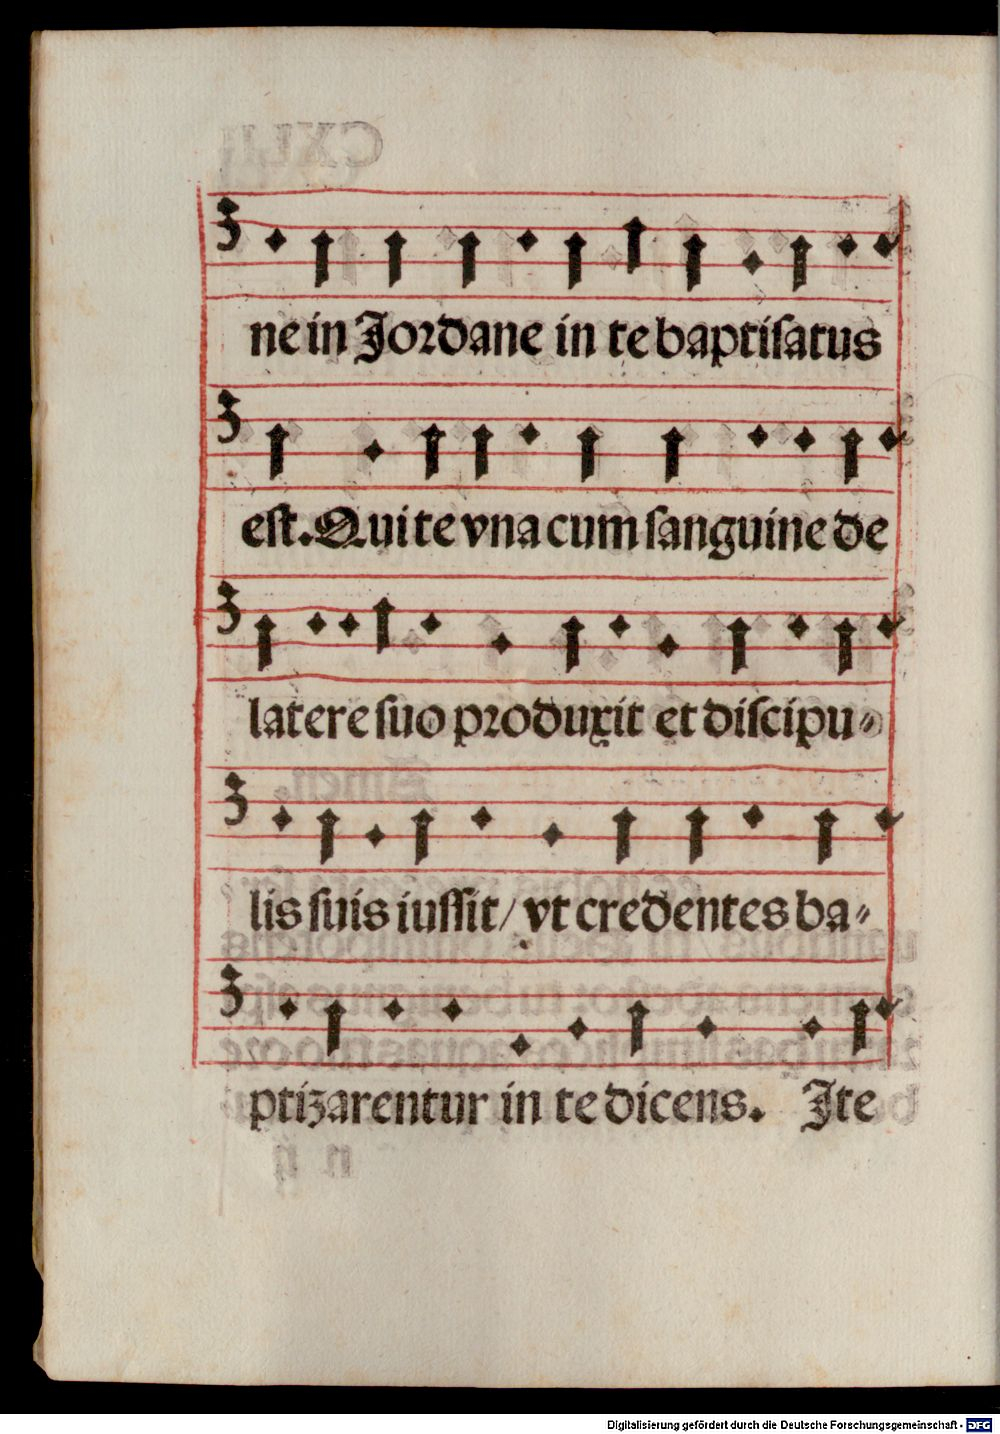 ne in Jordane in te baptiſatus
eſt. Qui te vna cum ſanguine de
latere ſuo produxit et diſcipu⸗
lis ſuis iuſſit/ vt credentes ba⸗
ptizarentur in te dicens. Jte
Digitalisierung gefördert durch die Deutsche Forschungsgemeinschaft - DFG